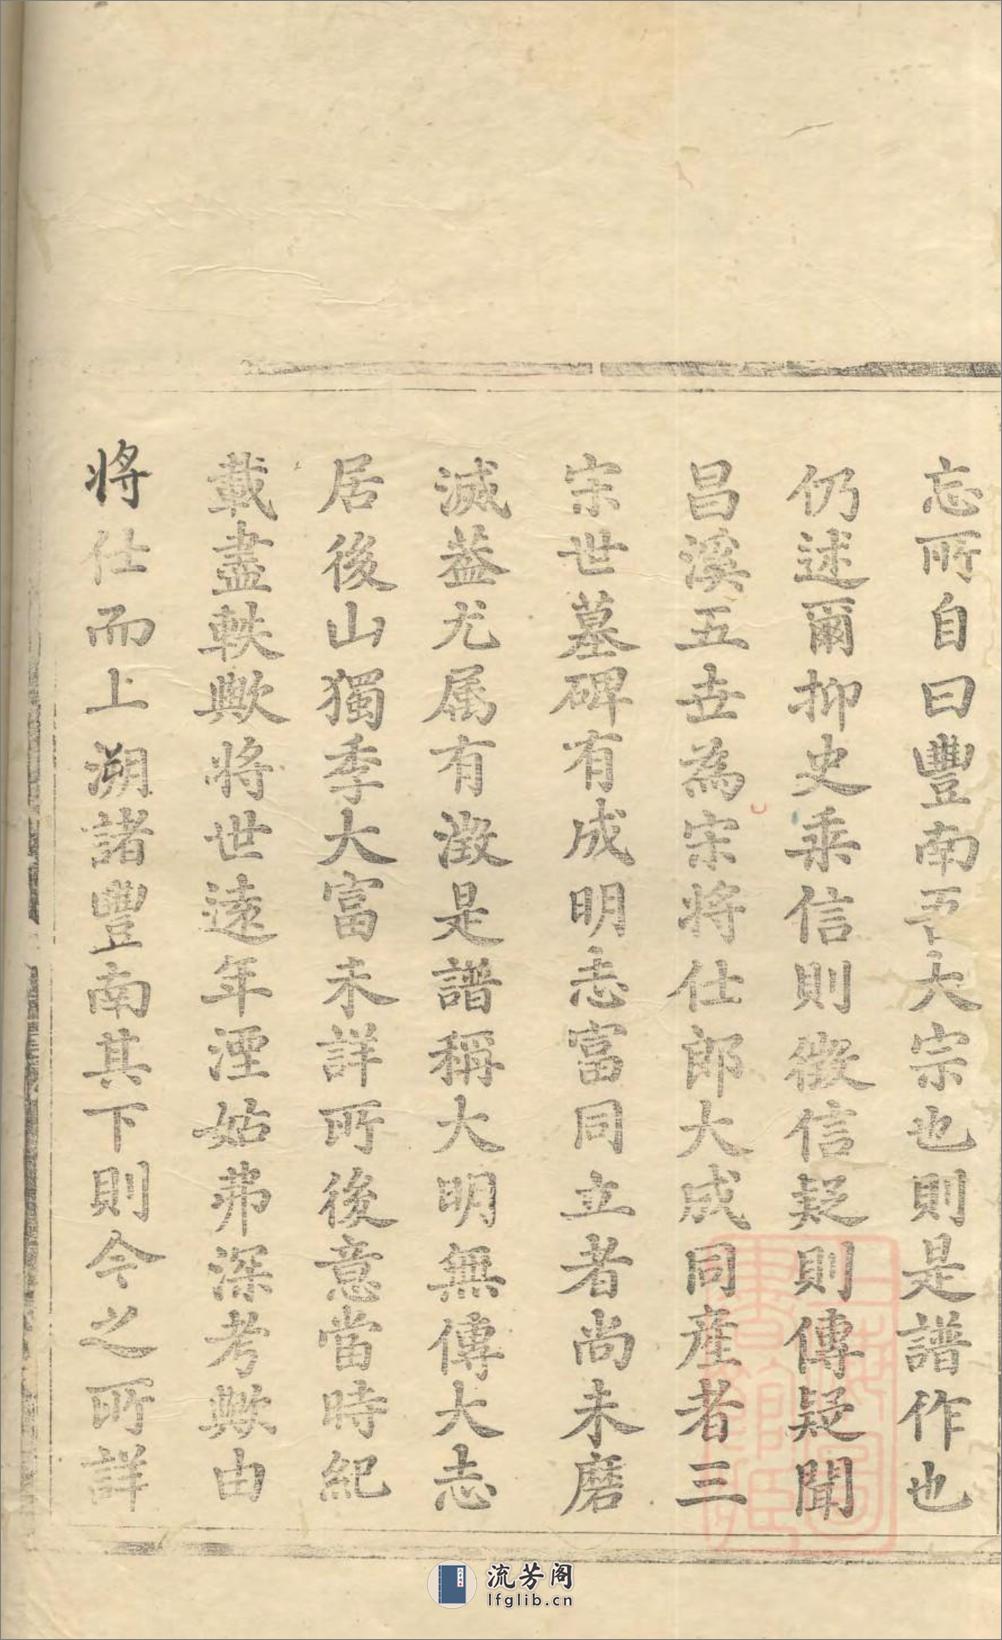 忘所自曰豐南吾大宗也則是譜作也
仍述爾抑史乘信則徵信疑則傳疑聞
昌溪五世為宋將仕郎大成同產者三
宗世墓碑有成明志富同立者尚未磨
滅蓋尤属有徵是譜稱大明無傳大志
居後山獨季大富未詳所後意當時紀
載盡軼歟將世遠年湮姑弗深考歟由
將仕而上溯諸豐南其下則今之所詳
流芳阁
lfglib.cn